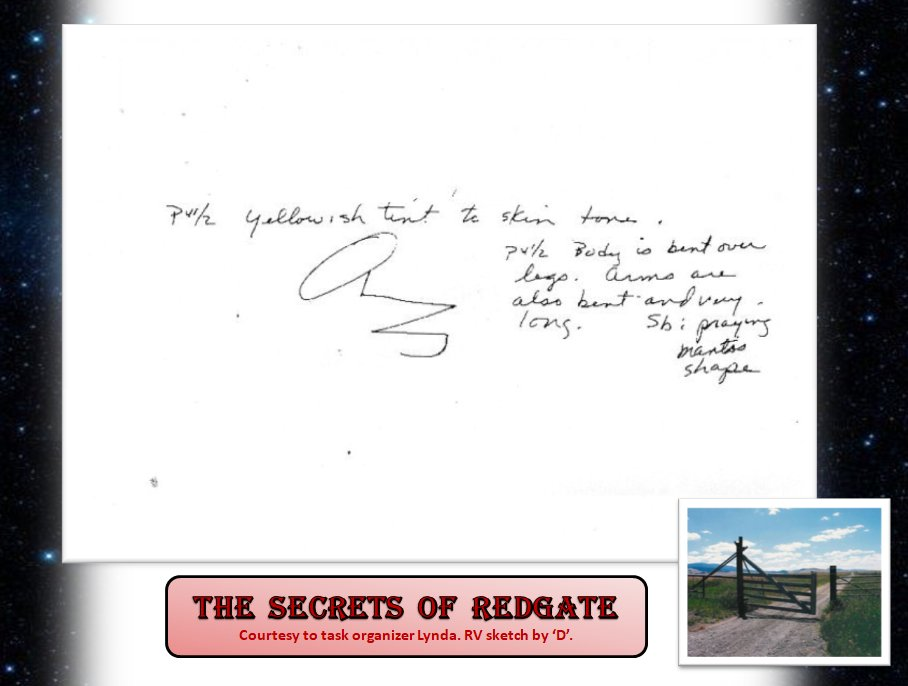 P4½ yellowish tint to skin tone.
P4½ Body is bent over
legs. Arms are
also bent and very
long. Sb: praying
mantis
shape
THE SECRETS OF REDGATE
Courtesy to task organizer Lynda. RV sketch by ‘D’.